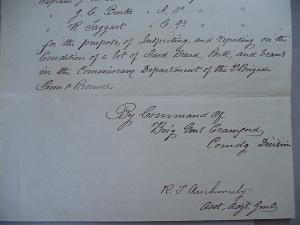 " J. C. Burke " A. 11" "
" R. Taggart " C. 9" "
for the purpose of Inspecting, and reporting on the
Condition of a lot of Hard Bread, Pork, and beans
in the Commissary Department of the 1" Brigade
Penn'a Reserves.
By Command of
Brig Genl Crawford
Comdg Division
R. T. Auchmuty
Asst. Adjt. Genl